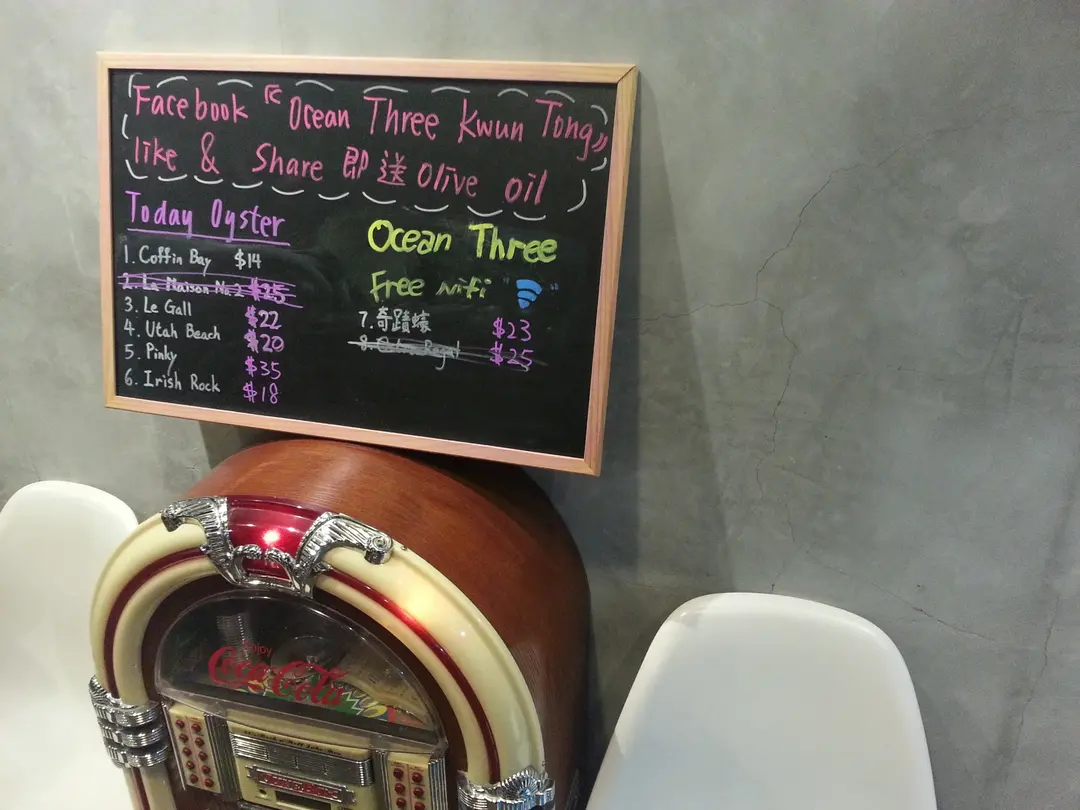 Facebook 『Ocean Three Kwun Tong』
like & Share 即送 Olive oil
Today Oyster
1. Coffin Bay $14
2. La Maison No.2 $25
3. Le Gall $22
4. Utah Beach $20
5. Pinky $35
6. Irish Rock $18
Ocean Three
Free wifi
7. 奇蹟蠔 $23
8. $25
Enjoy
Coca-Cola